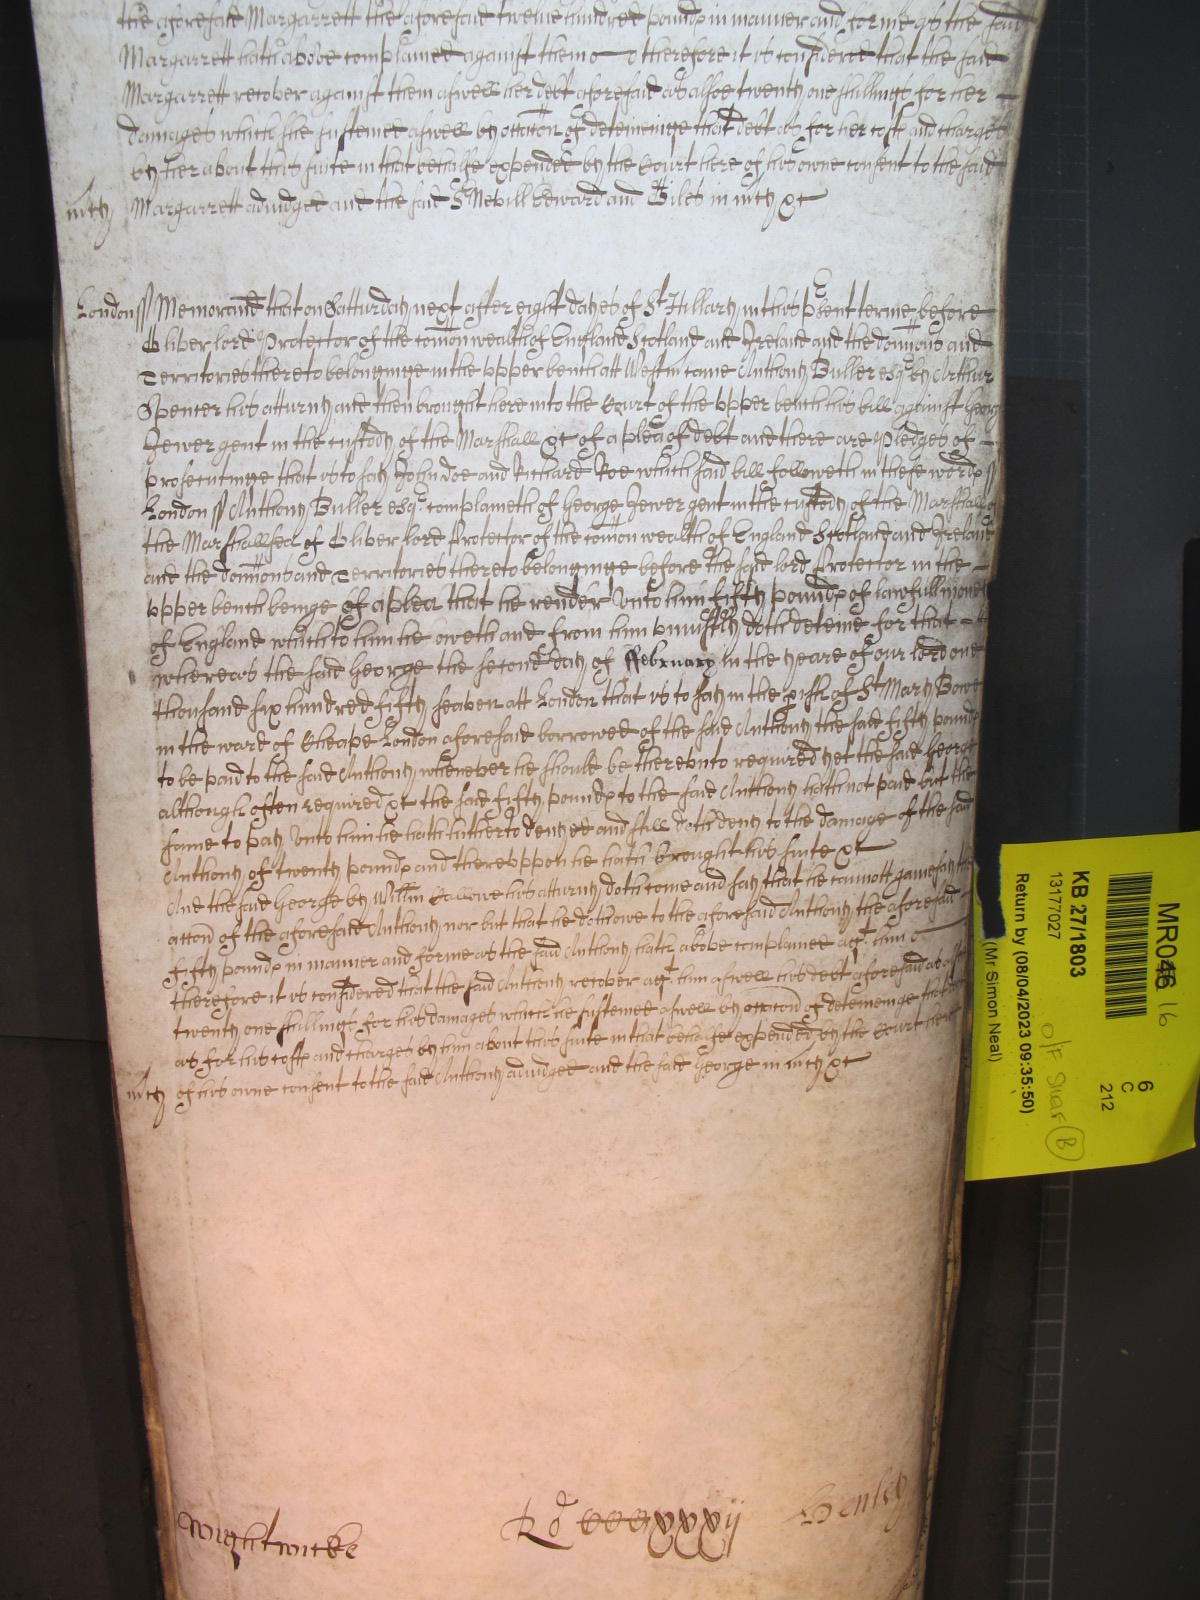 the aforesaid Margarrett the aforesaid twelve hundred pounds in manner and forme as the said
Margarrett hath above complained against them o therefore it is considered that the said
Margarrett recover against them aswell her debt aforesaid as alsoe twenty one shillings for her
damages which she susteined aswell by occac̃on of deteininge that debt as for her costs and charges
by her about this suite in that behalfe expended by the Court here of his owne consent to the said
m̃cy Margarrett adiudged and the said Sr Nevill Edward and Giles in m̃cy &c
London ss Memorand that on Satturday next after eight dayes of St Hillary in this p̃sent terme before
Oliver lord Protector of the com̃on wealth of England Scotland and Ireland and the domĩons and
Territories thereto belonginge in the vpper bench att Westm̃ came Anthony Buller esqr by Arthur
Spencer his atturny and then brought here into the Court of the vpper bench his bill against George
Hewer gent in the custody of the Marshall &c of a plea of debt and there are Pledges of
prosecutinge that is to say John Doe and Richard Roe which said bill followeth in these words ss
London ss Anthony Buller esqr complaineth of George Hewer gent in the custody of the Marshall of
the Marshallsea of Oliver lord Protector of the com̃on wealth of England Scotland and Ireland
and the domĩons and Territories thereto belonginge before the said lord Protector in the
vpper bench beinge of a plea that he render vnto him fifty pounds of lawfull money
of England which to him he oweth and from him vniustly doth deteine for that
whereas the said George the second day of ffebruary in the yeare of our lord one
thousand six hundred fifty seaven att London that is to say in the p̱ish of St Mary Bowe
in the ward of Cheape London aforesaid borrowed of the said Anthony the said fifty pounds
to be paid to the said Anthony whenever he should be therevnto required yet the said George
although often required &c the said fifty pounds to the said Anthony hath not paid but the
same to pay vnto him he hath hitherto denyed and still doth deny to the damage of the said
Anthony of twenty pounds and therevppon he hath brought his suite &c
And the said George by Will̃m his atturny doth come and say that he cannott gainesay the
acc̃on of the aforesaid Anthony nor but that he doth owe to the aforesaid Anthony the aforesaid
fifty pounds in manner and forme as the said Anthony hath above complained agt him o
therefore it is considered that the said Anthony recover agt him aswell his debt aforesaid as alsoe
twenty one shillings for his damages which he susteined aswell by occac̃on of deteininge that debt
as for his costs and charges by him about this suite in that behalfe expended by the Court here
m̃cy of his owne consent to the said Anthony adiudged and the said George in m̃cy &c
Wightwicke Ro CCCCxxxij Henley
MR046 16
KB 27/1803
13177027
Return by (08/04/2023 09:35:50)
(Mr Simon Neal)
6
C
212
O/F
B